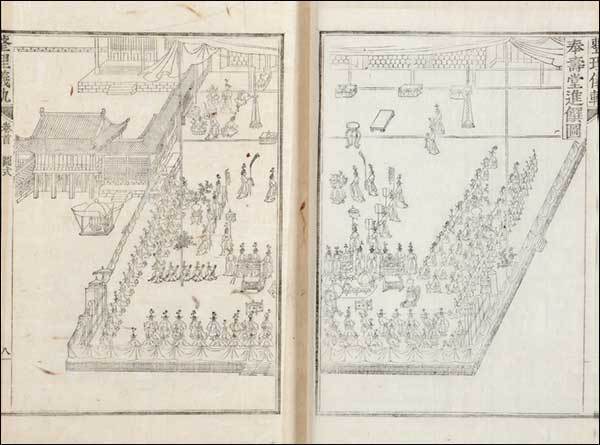 整理儀軌
奉壽堂進饌圖
整理儀軌
卷首 圖式
八